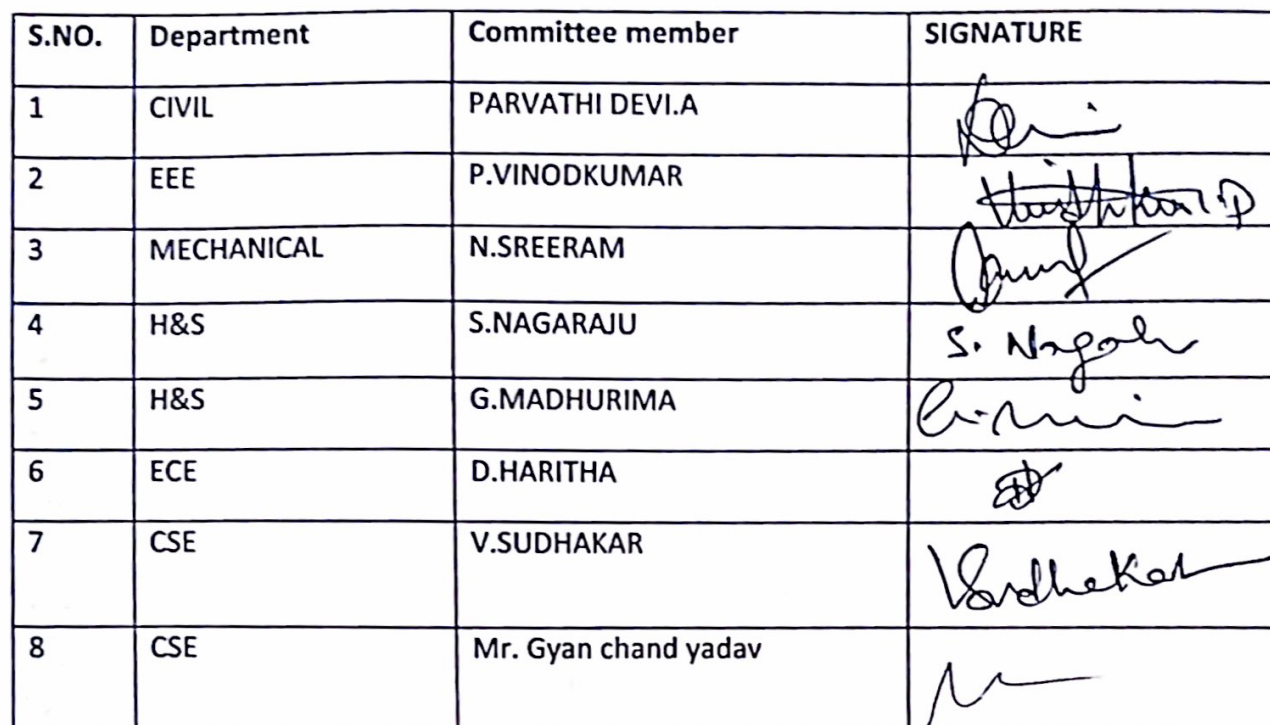 S.NO. Department Committee member SIGNATURE
1 CIVIL PARVATHI DEVI.A
2 EEE P.VINODKUMAR
3 MECHANICAL N.SREERAM
4 H&S S.NAGARAJU
5 H&S G.MADHURIMA
6 ECE D.HARITHA
7 CSE V.SUDHAKAR VSudhakar
8 CSE Mr. Gyan chand yadav